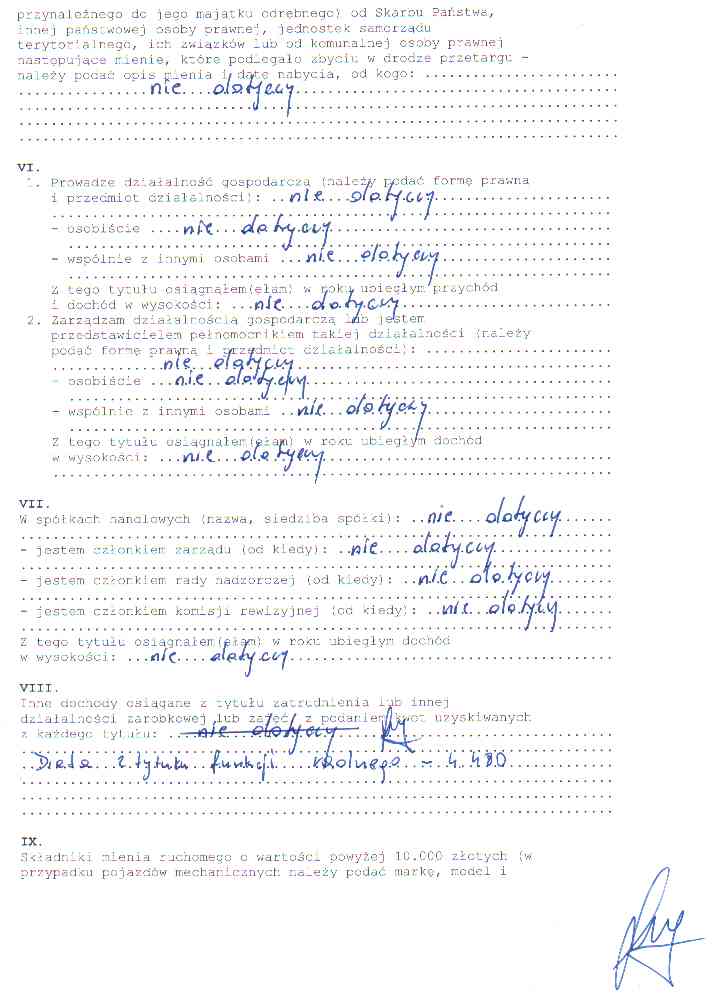 przynależnego do jego majątku odrębnego) od Skarbu Państwa,
innej państwowej osoby prawnej, jednostek samorządu
terytorialnego, ich związków lub od komunalnej osoby prawnej
następujące mienie, które podlegało zbyciu w drodze przetargu –
należy podać opis mienia i datę nabycia, od kogo:
nie dotyczy
VI.
1. Prowadzę działalność gospodarczą (należy podać formę prawną
i przedmiot działalności): nie dotyczy
- osobiście nie dotyczy
- wspólnie z innymi osobami nie dotyczy
Z tego tytułu osiągnąłem(ęłam) w roku ubiegłym przychód
i dochód w wysokości: nie dotyczy
2. Zarządzam działalnością gospodarczą lub jestem
przedstawicielem pełnomocnikiem takiej działalności (należy
podać formę prawną i przedmiot działalności):
nie dotyczy
- osobiście nie dotyczy
- wspólnie z innymi osobami nie dotyczy
Z tego tytułu osiągnąłem(ęłam) w roku ubiegłym dochód
w wysokości: nie dotyczy
VII.
W spółkach handlowych (nazwa, siedziba spółki): nie dotyczy
- jestem członkiem zarządu (od kiedy): nie dotyczy
- jestem członkiem rady nadzorczej (od kiedy): nie dotyczy
- jestem członkiem komisji rewizyjnej (od kiedy): nie dotyczy
Z tego tytułu osiągnąłem(ęłam) w roku ubiegłym dochód
w wysokości: nie dotyczy
VIII.
Inne dochody osiągane z tytułu zatrudnienia lub innej
działalności zarobkowej lub zajęć, z podaniem kwot uzyskiwanych
z każdego tytułu: nie dotyczy
Dieta z tytułu funkcji radnego – 4.480
IX.
Składniki mienia ruchomego o wartości powyżej 10.000 złotych (w
przypadku pojazdów mechanicznych należy podać markę, model i